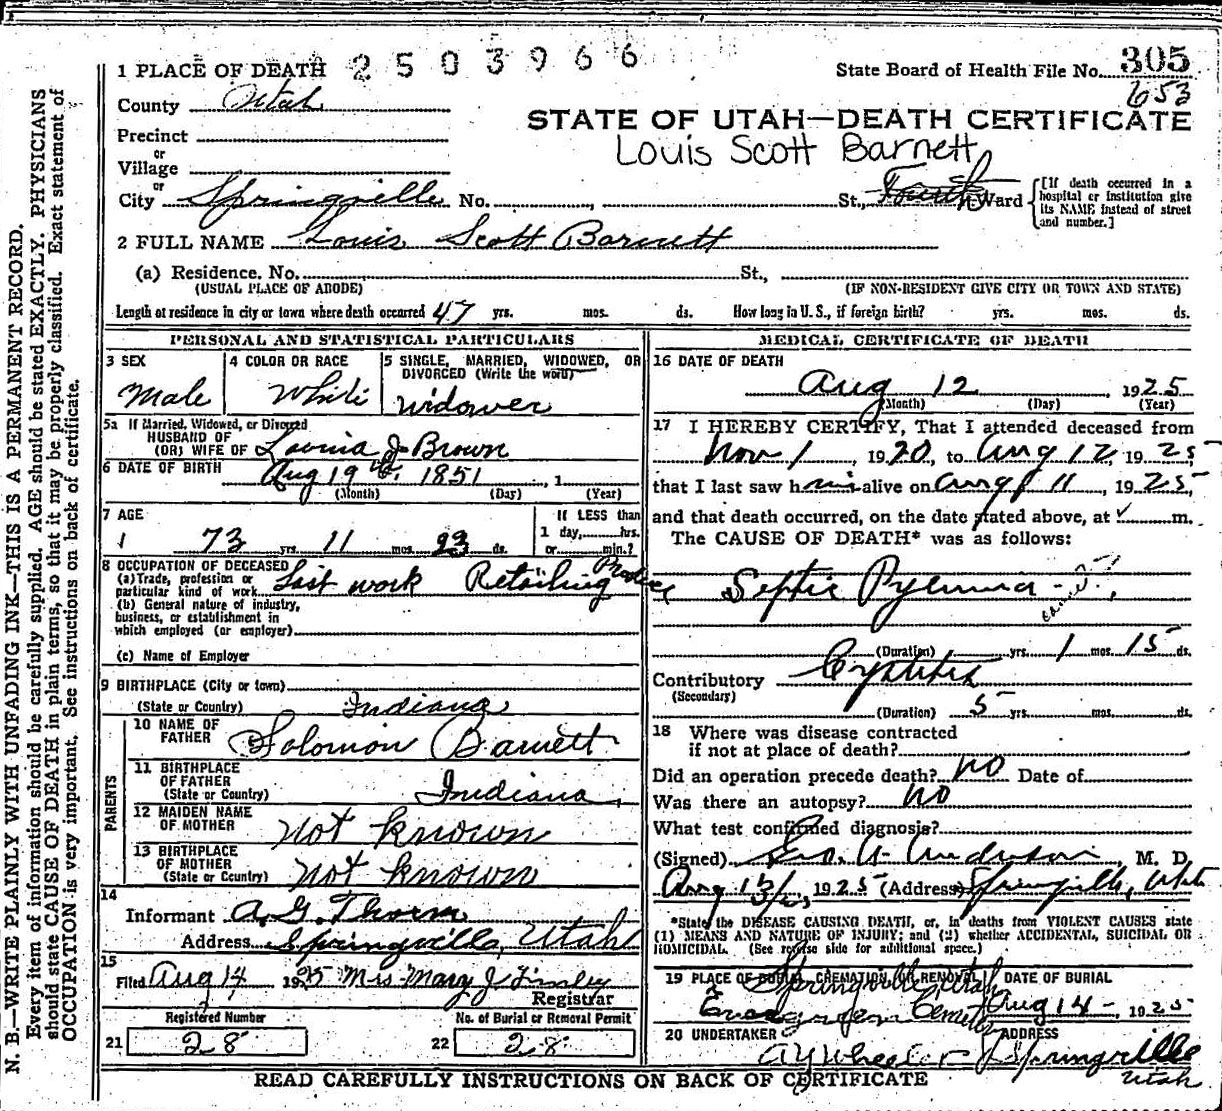 N. B.—WRITE PLAINLY WITH UNFADING INK—THIS IS A PERMANENT RECORD.
Every item of information should be carefully supplied. AGE should be stated EXACTLY. PHYSICIANS
should state CAUSE OF DEATH in plain terms, so that it may be properly classified. Exact statement of
OCCUPATION is very important. See instructions on back of certificate.
1 PLACE OF DEATH 2503966
State Board of Health File No. 305
653
County Utah
STATE OF UTAH—DEATH CERTIFICATE
Precinct
or
Louis Scott Barnett
Village
or
City Springville No. , St., Fourth Ward
[If death occurred in a
hospital or institution give
its NAME instead of street
and number.]
2 FULL NAME Louis Scott Barnett
(a) Residence. No. St.,
(USUAL PLACE OF ABODE) (IF NON-RESIDENT GIVE CITY OR TOWN AND STATE)
Length of residence in city or town where death occurred 47 yrs. mos. ds. How long in U. S., if foreign birth? yrs. mos. ds.
PERSONAL AND STATISTICAL PARTICULARS
3 SEX
Male
4 COLOR OR RACE
White
5 SINGLE, MARRIED, WIDOWED, OR
DIVORCED (Write the word)
Widower
5a If Married, Widowed, or Divorced
HUSBAND OF
(OR) WIFE OF Lovina J Brown
6 DATE OF BIRTH Aug 19th 1851 , 1
(Month) (Day) (Year)
7 AGE
73 yrs. 11 mos. 23 ds.
If LESS than
1 day, hrs.
or min.?
8 OCCUPATION OF DECEASED
(a) Trade, profession or
particular kind of work Last work Retailing
(b) General nature of industry,
business, or establishment in
which employed (or employer)
(c) Name of Employer
9 BIRTHPLACE (City or town)
(State or Country) Indiana
PARENTS
10 NAME OF
FATHER Solomon Barnett
11 BIRTHPLACE
OF FATHER
(State or Country) Indiana
12 MAIDEN NAME
OF MOTHER Not known
13 BIRTHPLACE
OF MOTHER
(State or Country) Not known
14
Informant A. G. Thorn
Address Springville, Utah
15
Filed Aug 14 1925 Mrs Mary J
Registrar
Registered Number
No. of Burial or Removal Permit
21 28 22 28
MEDICAL CERTIFICATE OF DEATH
16 DATE OF DEATH
Aug 12 , 1925
(Month) (Day) (Year)
17 I HEREBY CERTIFY, That I attended deceased from
Nov 1 , 1920, to Aug 12, 1925,
that I last saw him alive on Aug 11 , 1925,
and that death occurred, on the date stated above, at m.
The CAUSE OF DEATH* was as follows:
Septic Pyemia
(Duration) yrs. 1 mos. 15 ds.
Contributory Cystitis
(Secondary)
(Duration) 5 yrs. mos. ds.
18 Where was disease contracted
if not at place of death?
Did an operation precede death? No Date of
Was there an autopsy? No
What test confirmed diagnosis?
(Signed) Geo. A. Anderson , M. D.
Aug 13, 1925 (Address) Springville, Utah
*State the DISEASE CAUSING DEATH, or, in deaths from VIOLENT CAUSES state
(1) MEANS AND NATURE OF INJURY; and (2) whether ACCIDENTAL, SUICIDAL OR
HOMICIDAL. (See reverse side for additional space.)
19 PLACE OF BURIAL, CREMATION OR REMOVAL DATE OF BURIAL
Springville Utah
Evergreen Cemetery Aug 14 , 1925
20 UNDERTAKER ADDRESS
A Y Wheeler Springville
Utah
READ CAREFULLY INSTRUCTIONS ON BACK OF CERTIFICATE